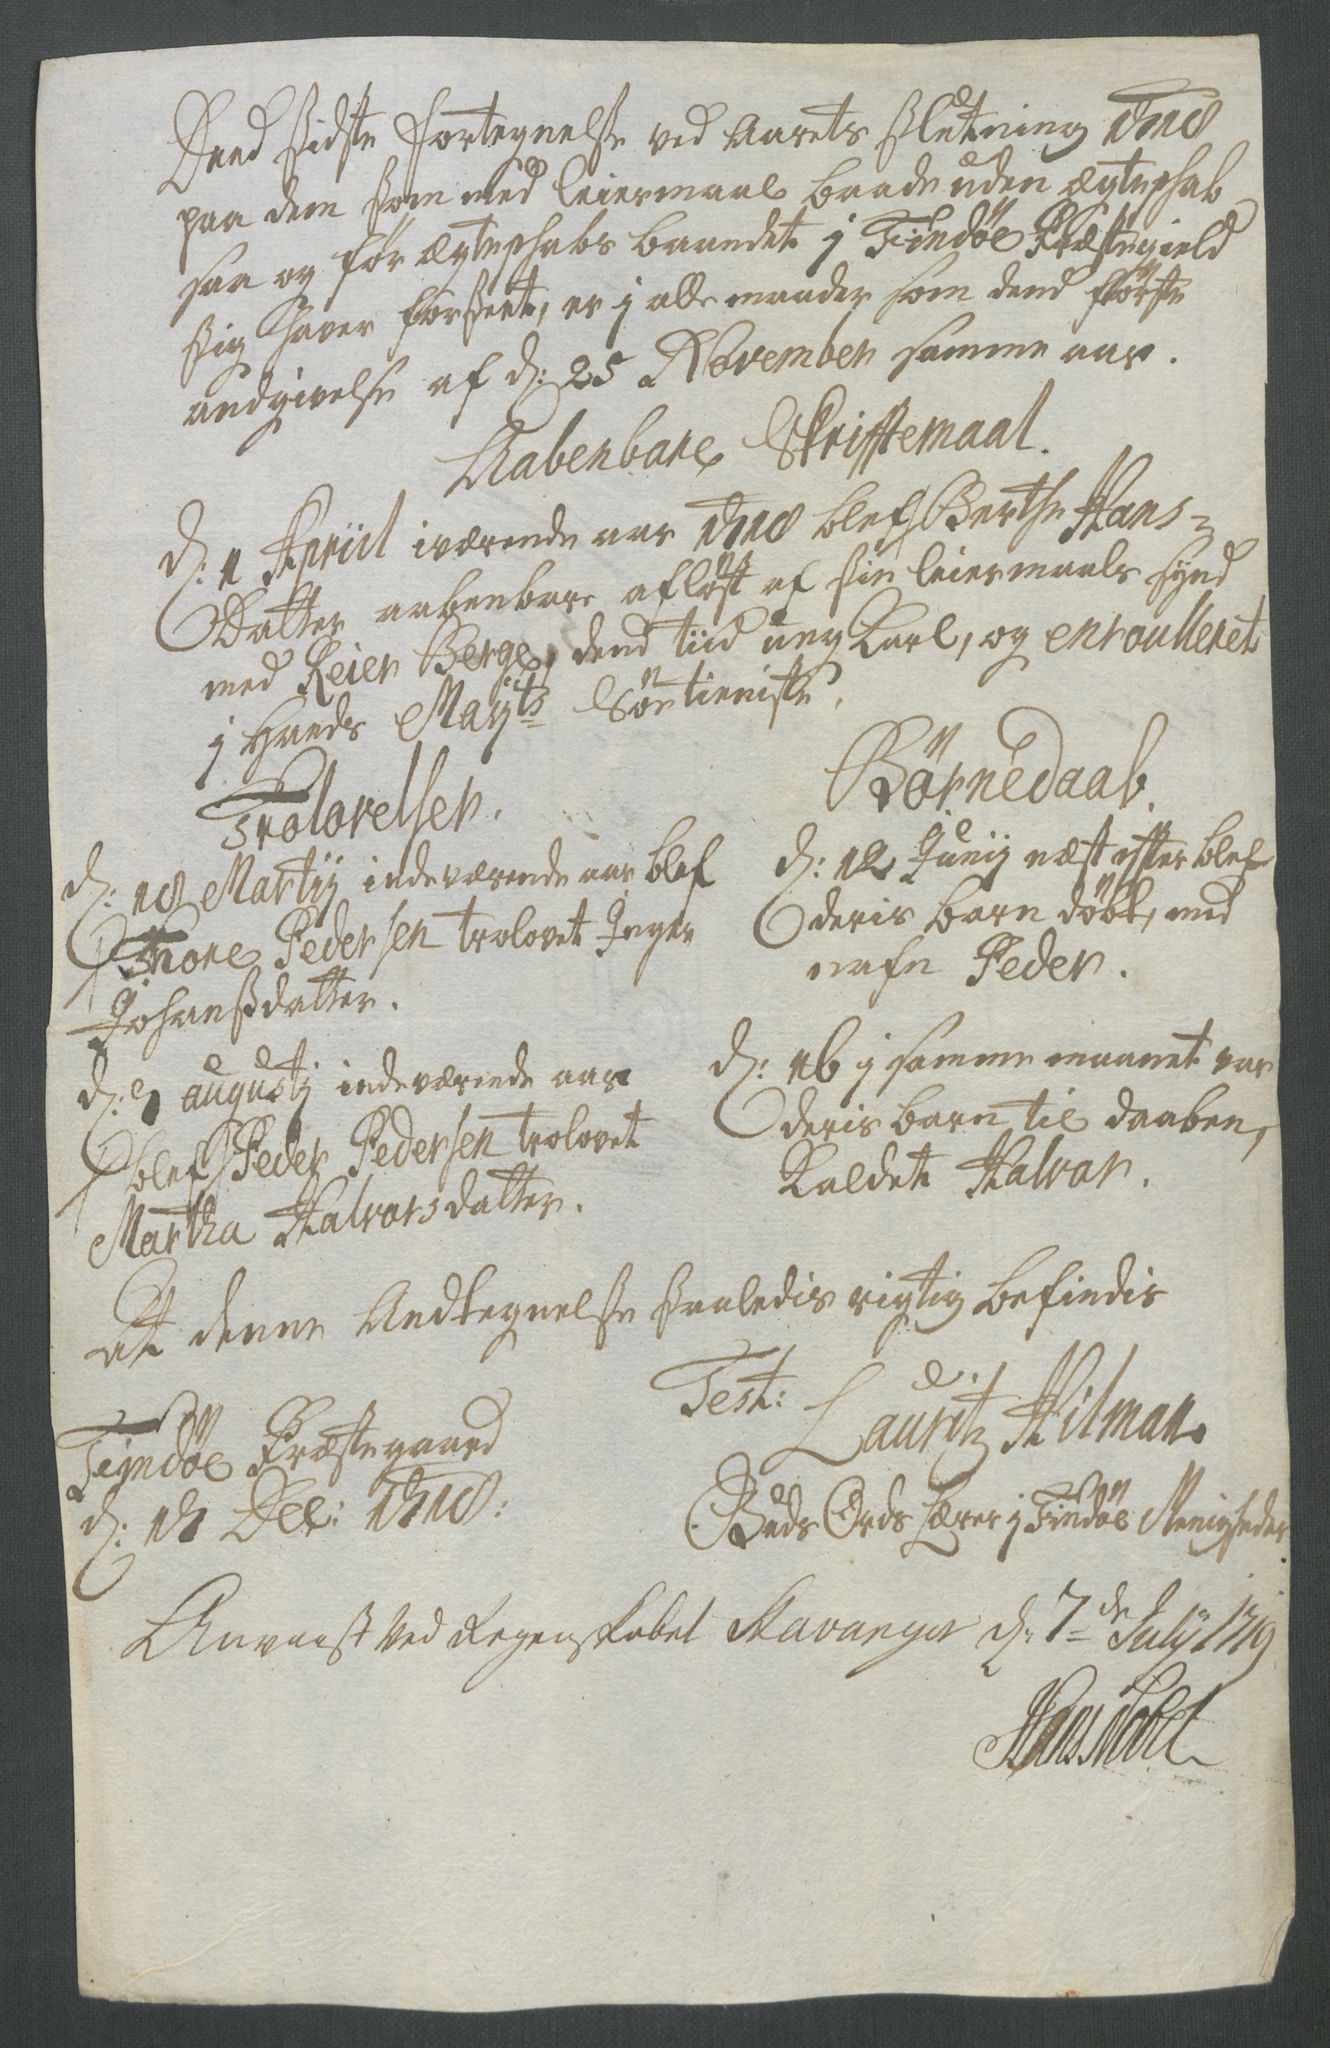 Dend sidste fortegnelse ved Aarets slutning 1718
paa dem som med leiermaal baade uden ægteskab
saa og før ægteskabs baandet j Findöe Præstegield
sig haver forseet, er j alle maader som dend förste
andgivelse af d: 25 November samme aar.
Aabenbare Skrifftemaal.
d: 1 Apriil iværende aar 1718 blef Berthe Hans-
Datter aabenbare aflöst af sin leiermaals synd
med Reier Berge, dend tiid ung Karl, og enroulleret
j Hands Mayts Söetieniste.
Trolovelser.
d: 18 Martij indeværende aar blef
Thore Pedersen trolovet Inger
Johansdatter.
d: 7 augustj indeværende aar
blef Peder Pedersen trolovet
Martha Halvorsdatter.
Börnedaab.
d: 12 Junij næst efter blef
deris barn döbt, med
nafn Peder.
d: 16 j samme maanet var
deris barn til daaben,
Kaldet Halvor.
At denne Andtegnelse saaledis rigtig befindis
Test: Lauritz Hilman
Guds Ords Lærer j Findöe Menigheder.
Findöe Præstegaard
d: 17 Dec: 1718:
Anvist ved Regenskabet Stavanger d: 7de July 1719
Hans Nobel